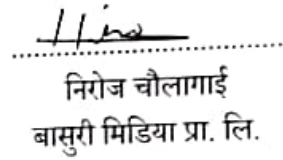 निरोज चौलागाई
बासुरी मिडिया प्रा. लि.